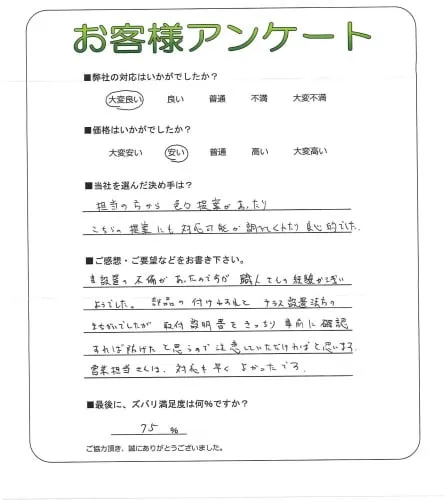 お客様アンケート
■弊社の対応はいかがでしたか?
大変良い 良い 普通 不満 大変不満
■価格はいかがでしたか?
大変安い 安い 普通 高い 大変高い
■当社を選んだ決め手は?
担当の方から 色々提案があったり
こちらの提案にも対応可能か調べてくれたり良心的でした.
■ご感想・ご要望などをお書き下さい。
設置の不備があったのですが 職人さんの経験が浅い
ようでした。部品の付け忘れと テラス設置法ちの
まちがいでしたが 取付説明書をきっちり事前に確認
すれば防げたと思うので注意していただければと思います.
営業担当さんは、対応も早く よかったです.
■最後に、ズバリ満足度は何%ですか?
75 %
ご協力頂き、誠にありがとうございました。